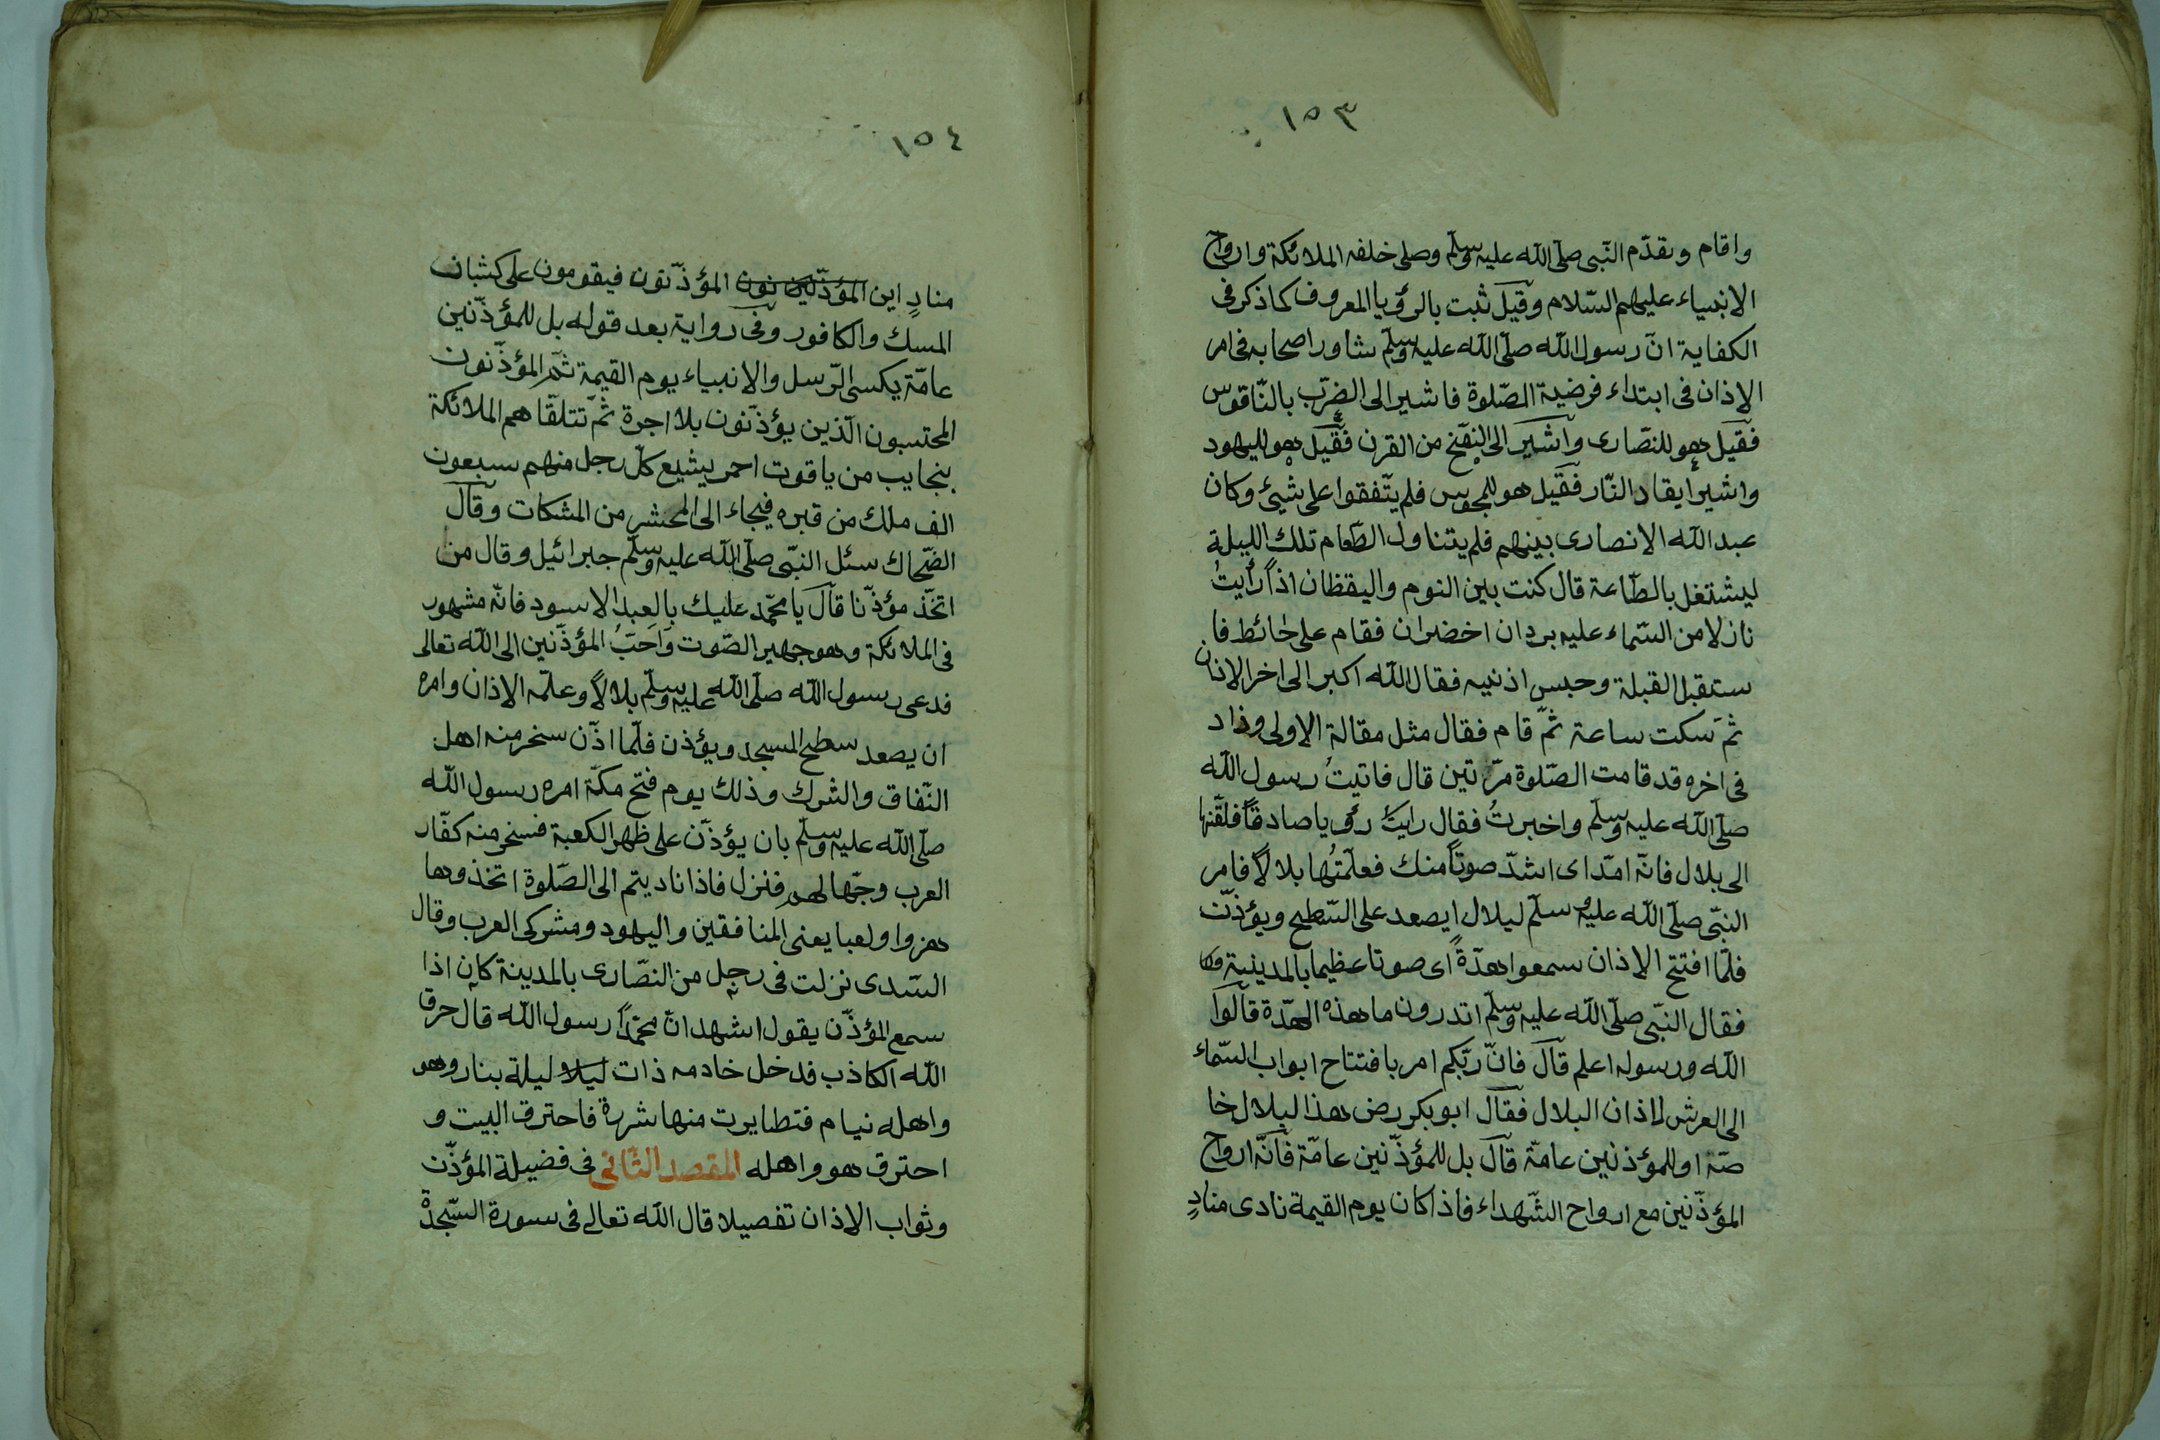 ١٥٣
واقام وتقدّم النّبى صلّى الله عليه وسلّم وصلى خلفه الملائكة وارواح
الانبياء عليهم السّلام وقيل ثبت بالرؤيا المعروف كما ذكر فى
الكفاية انّ رسول الله صلّى الله عليه وسلّم شاور اصحابه فى امر
الاذان فى ابتداء فرضية الصّلوة فاشير الى الضرّب بالنّاقوس
فقيل هو للنصّارى واشير الى النفخ من القرن فقيل هو لليهود
واشير ايقاد النّار فقيل هو للمجوس فلم يتّفقوا على شيئ وكان
عبد الله الانصارى بينهم فلم يتناول الطّعام تلك الليلة
ليشتغل بالطّاعة قال كنت بين النوم واليقظان اذاً رأيتُ
نازلا من السّماء عليه بردان اخضران فقام على حائط فا
ستقبل القبلة وحبس اذنيه فقال الله اكبر الى اخر الاذان
ثمّ سكت ساعة ثمّ قام فقال مثل مقالة الاولى وذاد
فى اخره قد قامت الصّلوة مرّتين قال فاتيتُ رسول الله
صلّى الله عليه وسلّم واخبرتُ فقال رايتَ رؤيا صادقاً فلقّنها
الى بلال فانّه امدّ اى اشدّ صوتاً منك فعلّمتُها بلالاً فامر
النبّى صلّى الله عليه وسلّم لبلال ايصعد على السّطح ويؤذّن
فلمّا افتتح الاذان سمعوا هدّةً اى صوتا عظيما بالمدينية
فقال النبّى صلّى الله عليه وسلّم اتدرون ما هذه الهدّة قالوا
الله ورسوله اعلم قال فانّ ربّكم امر بافتتاح ابواب السّماء
الى العرش لاذان البلال فقال ابو بكر رض هذا لبلال خا
صّة او للمؤذنين عامّة قال بل للمؤذّنين عامّة فانّه ارواح
المؤذّنين مع ارواح الشّهداء فاذا كان يوم القيمة نادى منادٍ
١٥٤
منادٍ اين المؤذّنون فيقومون على كثبان
المسك والكافور وفى رواية بعد قوله بل للمؤذّنين
عامّة يكسى الرّسل والانبياء يوم القيمة ثمّ المؤذّنون
المحتسبون الّذين يؤذّنون بلا اجرة ثمّ تتلقّاهم الملائكة
بنجايب من ياقوت احمر يشيع كلّ رجل منهم سبعون
الف ملك من قبره فيجاء الى المحشر من المشكات وقال
الضّحاك سئل النبّى صلّى الله عليه وسلّم جبرائيل وقال من
اتخّذ مؤذّنا قال يا محمّد عليك بالعبد الاسود فانّه مشهور
فى الملائكة وهو جهير الصّوت وَاَحَبّ المؤذّنين الى الله تعالى
فدعى رسول الله صلّى الله عليه وسلّم بلالاً وعلّمه الاذان وامره
ان يصعد سطح المسجد ويؤذن فلمّا اذّن سخر منه اهل
النّفاق والشرك وذلك يوم فتح مكّة امره رسول الله
صلّى الله عليه وسلّم بان يؤذّن على ظهر الكعبة فسخر منه كفّار
العرب وجّهالهم فنزل فاذا ناديتم الى الصّلوة اتخذوها
هزوا ولعبا يعنى المنافقين واليهود ومشركى العرب وقال
السّدى نزلت فى رجل من النصّارى بالمدينة كان اذا
سمع المؤذّن يقول اشهد انّ محمّداً رسول الله قال حرق
الله الكاذب فدخل خادمه ذات ليلا ليلة بنار وهو
واهله نيام فتطايرت منها شررة فاحترق البيت و
احترق هو واهله المقصد الثّانى فى فضيلة المؤذّن
وثواب الاذان تفصيلا قال الله تعالى فى سورة السّجدة